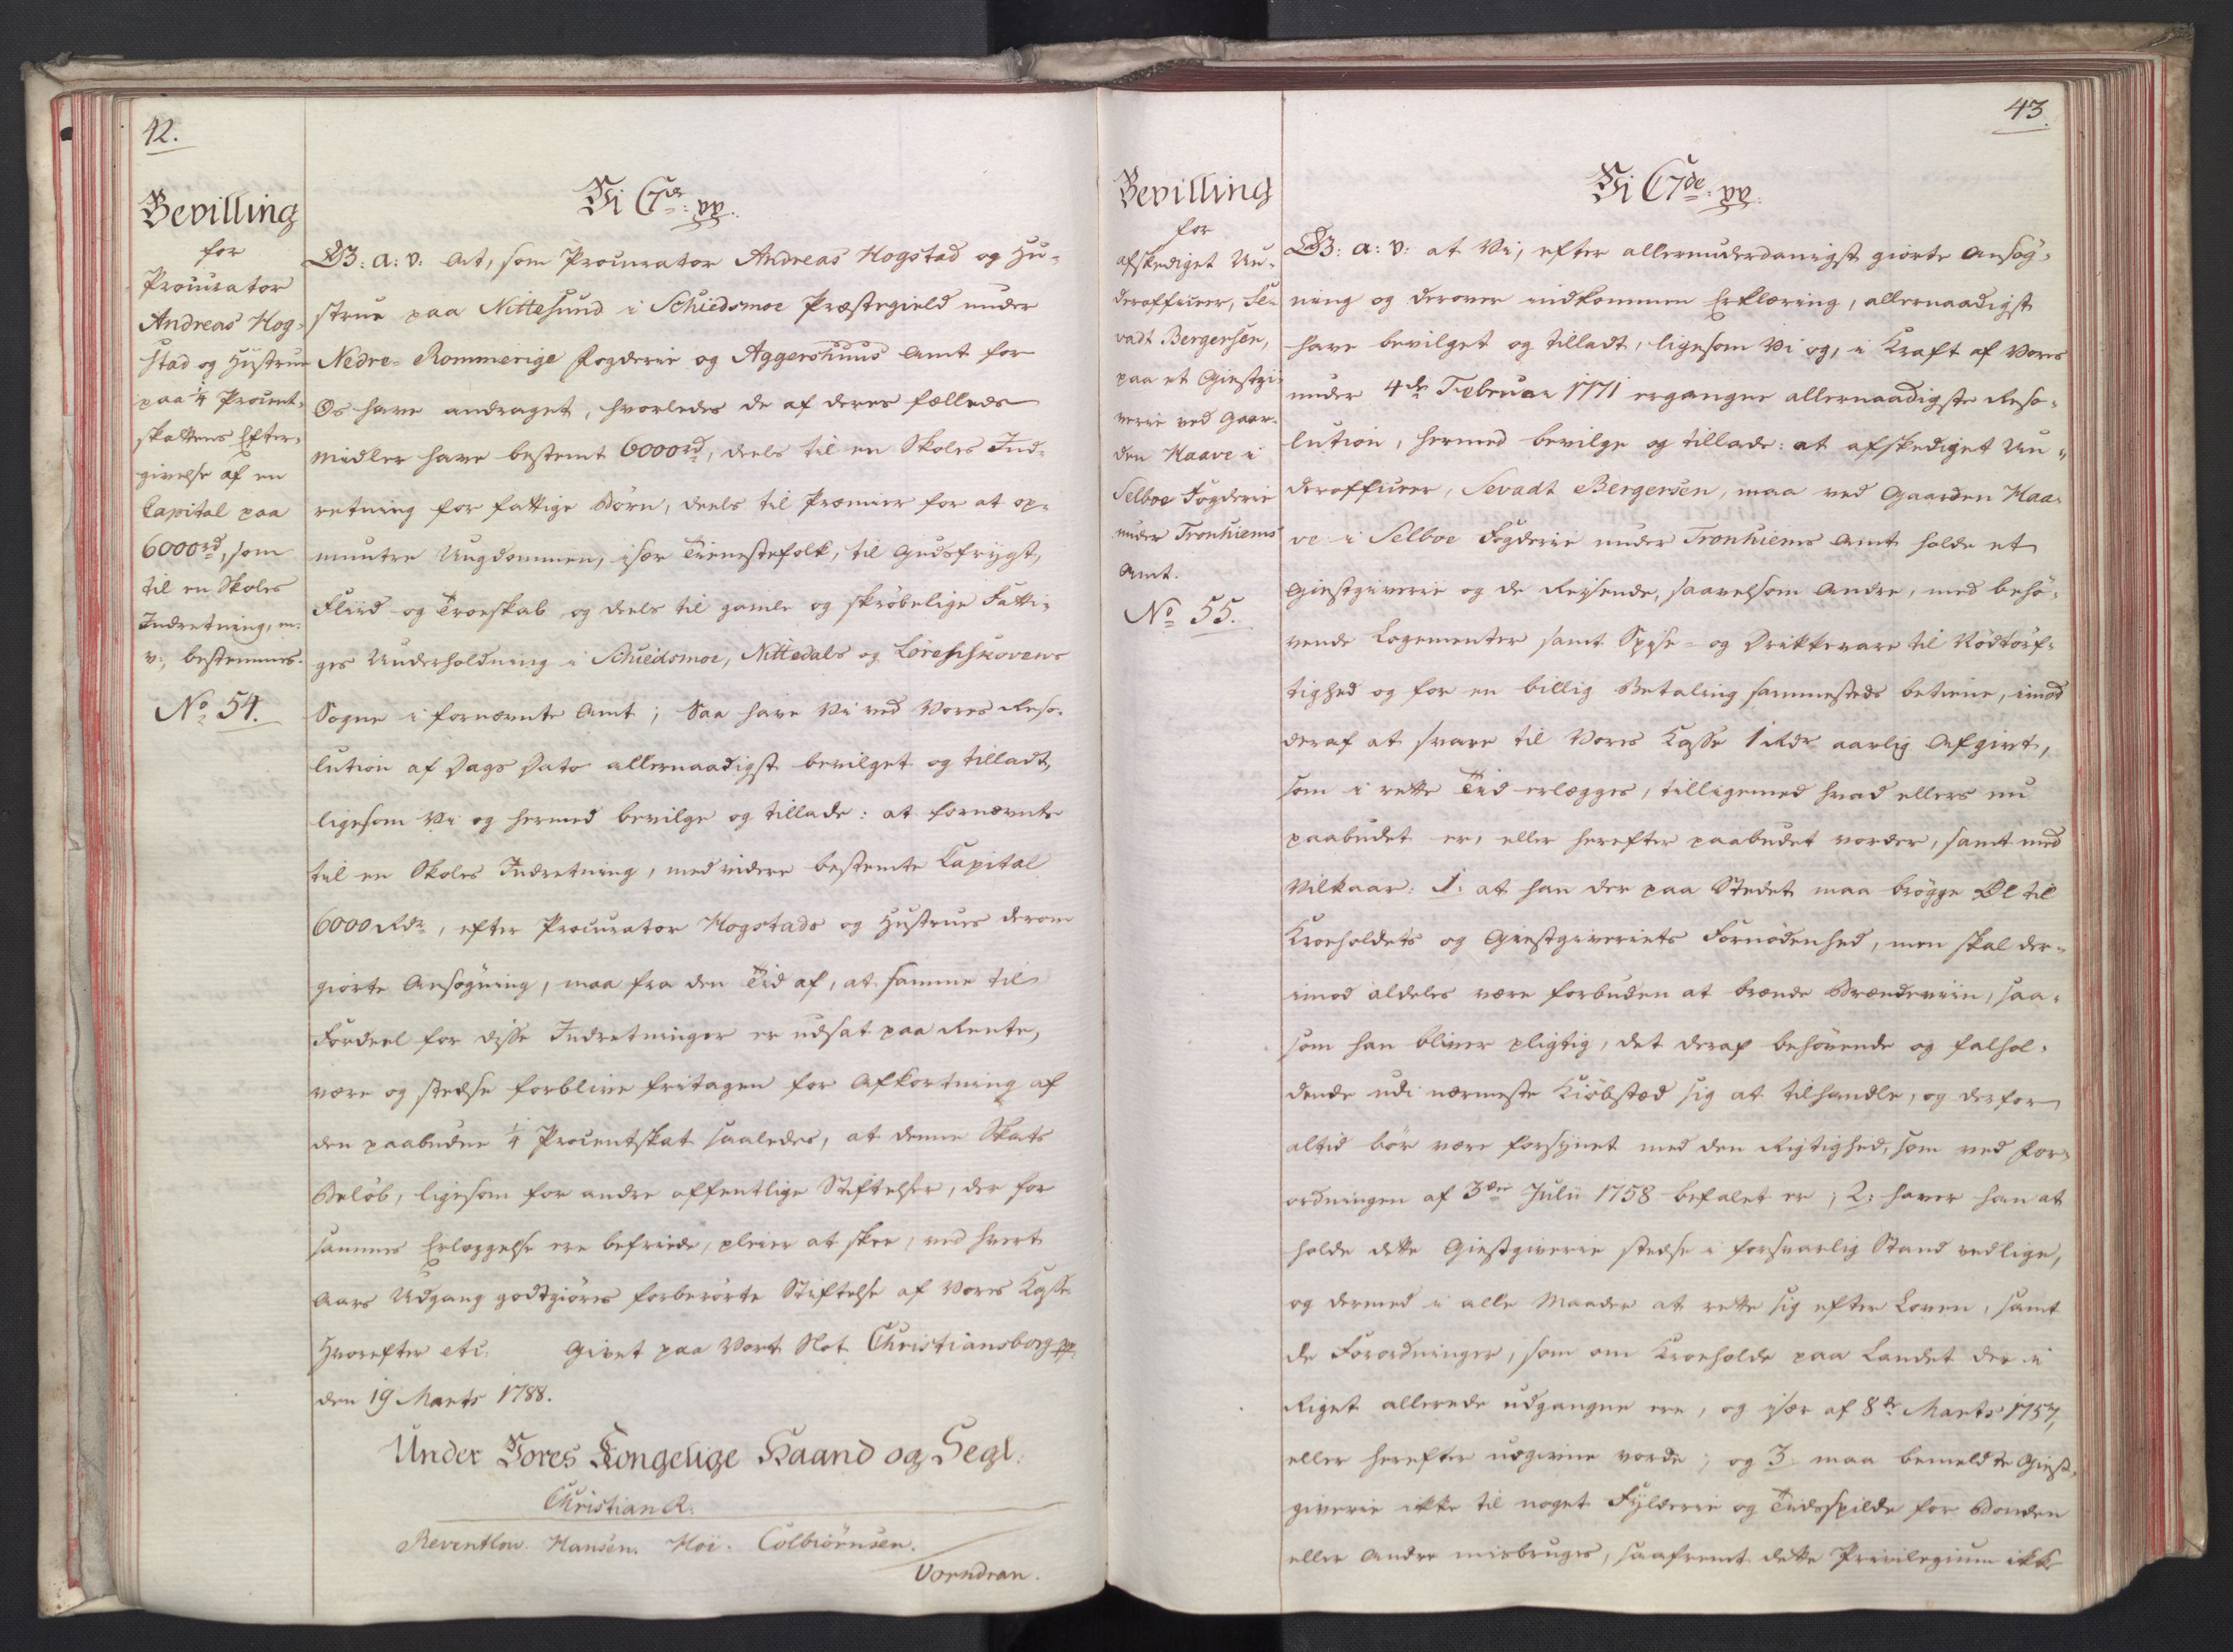 42.
Bevilling
for
Procurator
Andreas Hog-
stad og Hustrue
paa 1/4 Procent-
skattens Efter-
givelse af en
Capital paa
6000rd, som
til en Skoles
Indretning, m:
v:, bestemmes.
No 54.
Vi C7de: pp.
G: a: v: At, som Procurator Andreas Hogstad og Hu-
strue paa Nittesund i Schiedsmoe Præstegield under
Nedre-Rommerige Fogderie og Aggershuus Amt for
Os have andraget, hvorledes de af deres fælleds
Midler have bestemt 6000rd, deels til en Skoles Ind-
retning for fattige Børn, deels til Præmier for at op-
muntre Ungdommen, især Tienestefolk, til Gudsfrygt,
Fliid og Troeskab og deels til gamle og skrøbelige Fatti-
ges Underholdning i Schiedsmoe, Nittedals og Lørenskovens
Sogne i fornævnte Amt; Saa have Vi ved Vores Reso-
lution af Dags Dato allernaadigst bevilget og tilladt,
ligesom Vi og hermed bevilge og tillade: at fornævnte
til en Skoles Indretning, med videre bestemte Capital
6000 Rdr, efter Procurator Hogstads og Hustrues derom
giorte Ansøgning, maa fra den Tid af, at samme til
Fordeel for disse Indretninger er udsat paa Rente,
være og stedse forblive fritagen for Afkortning af
den paabudne 1/4 Procentskat saaledes, at denne Skats
Beløb, ligesom for andre offentlige Stiftelser, der for
sammes Erlæggelse ere befriede, pleier at skee, ved hvert
Aars Udgang godtgiøres forberørte Stiftelse af Vores Kasse
Hvorefter etc. Givet paa Vort Slot Christiansborg pp.
den 19 Marts 1788.
Under Vores Kongelige Haand og Segl.
Christian R.
Reventlow. Hansen. Höi. Colbiörnsen.
Vorndran.
43.
Bevilling
for
afskediget Un-
derofficeer, Se-
vadt Bergersen,
paa et Giestgi-
verie ved Gaar-
den Haave i
Selboe Fogderie
under Tronhiems
Amt.
No 55.
Vi C7de: pp.
G: a: v: at Vi, efter allerunderdanigst giorte Ansøg-
ning og derover indkommen Erklæring, allernaadigst
have bevilget og tilladt, ligesom Vi og, i Kraft af Vores
under 4de Februar 1771 ergangne allernaadigste Reso-
lution, hermed bevilge og tillade: at afskediget Un-
derofficeer, Sevadt Bergersen, maa ved Gaarden Haa-
ve i Selboe Fogderie under Tronhiems Amt holde et
Giestgiverie og de Reisende, saavelsom Andre, med behø-
vende Logementer samt Spise- og Drikkevare til Nødtørf-
tighed og for en billig Betaling sammesteds betiene, imod
deraf at svare til Vores Kasse 1 Rdr aarlig Afgivt,
som i rette Tid erlægges, tilligemed hvad ellers nu
paabudet er, eller herefter paabudet vorder, samt med
Vilkaar: 1: at han der paa Stedet maa brøgge Øl til
Kroeholdets og Giestgiveriets Fornødenhed, men skal der-
imod aldeles være forbuden at brænde Brændeviin, saa-
som han bliver pligtig, det deraf behøvende og falhol-
dende udi nærmeste Kiøbstæd sig at tilhandle, og derfor
altid bør være forsynet med den Rigtighed, som ved For-
ordningen af 3die Julii 1758 befalet er; 2: haver han at
holde dette Giestgiverie stedse i forsvarlig Stand vedlige,
og dermed i alle Maader at rette sig efter Loven, samt
de Forordninger, som om Kroehold paa Landet der i
Riget allerede udgangne ere, og især af 8de Marts 1757,
eller herefter udgivne vorde; og 3 maa bemeldte Giest-
giverie ikke til noget Fylderie og Tidsspilde for Bonden
eller Andre misbruges, saafremt dette Privilegium ikke